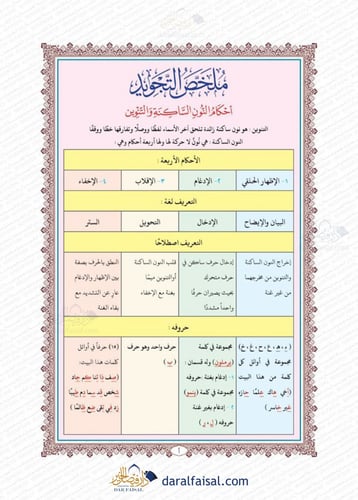 ملخص التجويد
أحكام النون الساكنة والتنوين
التنوين : هو نون ساكنة زائدة تلحق آخر الأسماء لفظًا ووصلًا وتفارقها خطًا ووقفًا
النون الساكنة : هي نُونٌ لا حركة لها ولها أربعة أحكام وهي :
الأحكام الأربعة :
١- الإظهار الحلقي
٢- الإدغام
٣- الإقلاب
٤- الإخفاء
التعريف لغة :
البيان والإيضاح
الإدخال
التحويل
الستر
التعريف اصطلاحًا
إخراج النون الساكنة
والتنوين من مخرجهما
من غير غنة
إدخال حرف ساكن في
حرف متحرك
بحيث يصيران حرفًا
واحداً مشددًا
قلب النون الساكنة
أو التنوين ميمًا
بغنة مع الإخفاء
النطق بالحرف بصفة
بين الإظهار والإدغام
عارٍ عن التشديد مع
بقاء الغنة
حروفه :
(ء ، هـ ، ع ، ح ، غ ، خ)
مجموعة في أوائل كل
كلمة من هذا البيت:
أخي هاك علمًا حازه
غير خاسر)
مجموعة في كلمة
(يرملون) وله قسمان :
١- إدغام بغنة حروفه
في كلمة (ينمو)
٢- إدغام بغير غنة
حروفه ( ل ، ر )
حرف واحد وهو حرف
( ب )
(١٥) حرفاً في أوائل
كلمات هذا البيت:
(صف ذا ثنا كم جاد
شخص قد سما دم طيبًا
زد في تقى ضع ظالمًا)
١
دار فيصل الخير
DAR FAISAL
daralfaisal.com